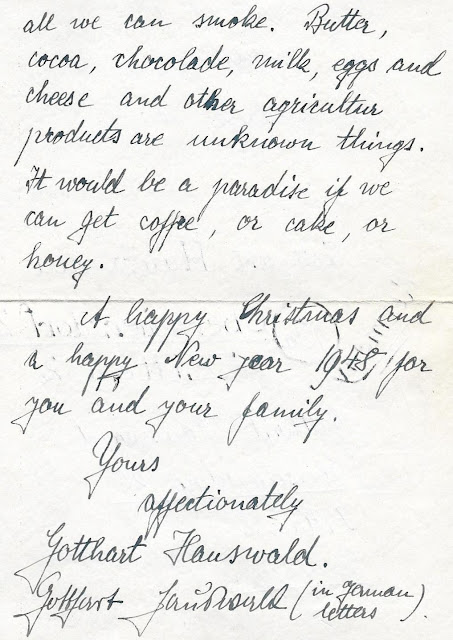 all we can smoke. Butter,
cocoa, chocolade, milk, eggs and
cheese and other agricultur
products are unknown things.
It would be a paradise if we
can get coffee, or cake, or
honey.
A happy Christmas and
a happy New year 1948, for
you and your family.
Yours
affectionately
Gotthart Hauswald.
Gotthart Hauswald (in german
letters)